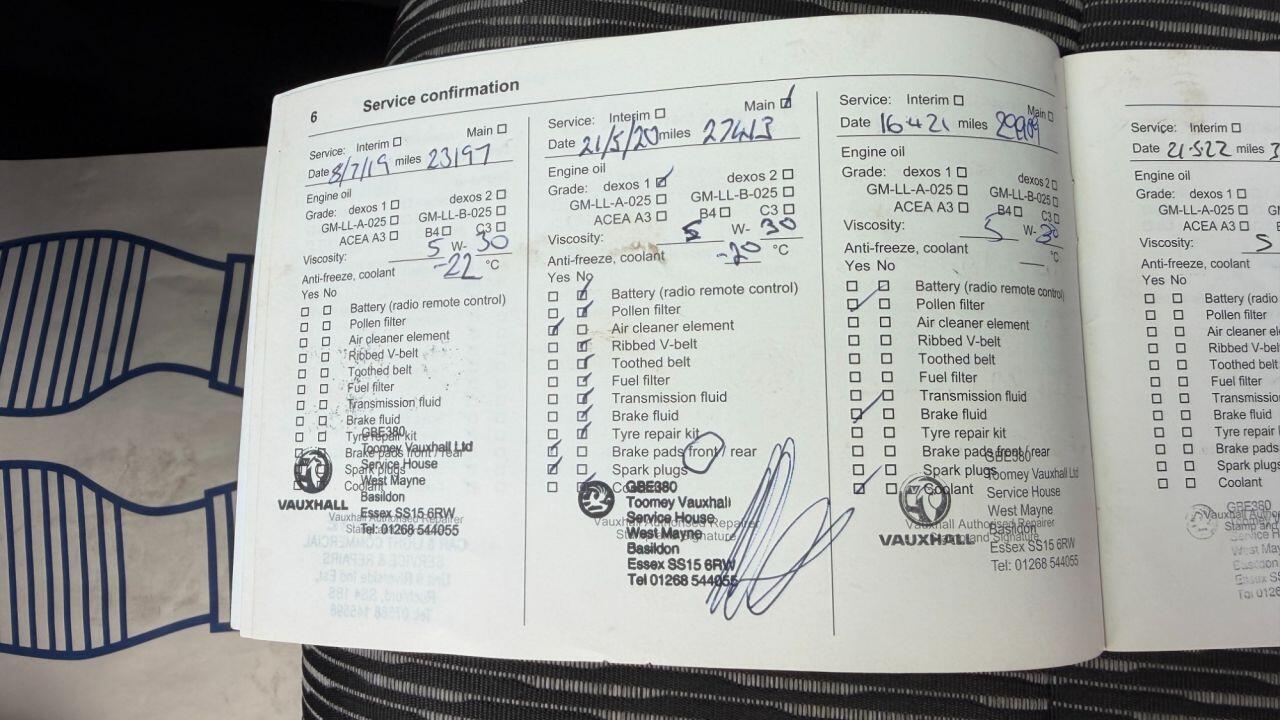 6 Service confirmation
Service: Interim Main
Date 8/7/19 miles 23197
Engine oil
Grade: dexos 1 dexos 2
GM-LL-A-025 GM-LL-B-025
ACEA A3 B4 C3
Viscosity: 5 W- 30
Anti-freeze, coolant -22 °C
Yes No
Battery (radio remote control)
Pollen filter
Air cleaner element
Ribbed V-belt
Toothed belt
Fuel filter
Transmission fluid
Brake fluid
Tyre repair kit
Brake pads front / rear
Spark plugs
Coolant
Vauxhall Authorised Repairer
GBE380
Toomey Vauxhall Ltd
Service House
West Mayne
Basildon
Essex SS15 6RW
Tel: 01268 544055
VAUXHALL
Service: Interim Main
Date 21/5/20 miles 27413
Engine oil
Grade: dexos 1 dexos 2
GM-LL-A-025 GM-LL-B-025
ACEA A3 B4 C3
Viscosity: 5 W- 30
Anti-freeze, coolant -20 °C
Yes No
Battery (radio remote control)
Pollen filter
Air cleaner element
Ribbed V-belt
Toothed belt
Fuel filter
Transmission fluid
Brake fluid
Tyre repair kit
Brake pads front / rear
Spark plugs
Vauxhall Authorised Repairer
GBE380
Toomey Vauxhall
Service House
West Mayne
Basildon
Essex SS15 6RW
Tel 01268 544055
Service: Interim Main
Date 16.4.21 miles 29909
Engine oil
Grade: dexos 1 dexos 2
GM-LL-A-025 GM-LL-B-025
ACEA A3 B4 C3
Viscosity: 5 W- 30
Anti-freeze, coolant °C
Yes No
Battery (radio remote control)
Pollen filter
Air cleaner element
Ribbed V-belt
Toothed belt
Fuel filter
Transmission fluid
Brake fluid
Tyre repair kit
Brake pads front /rear
Spark plugs
Coolant
Vauxhall Authorised Repairer
Stamp and Signature
GBE380
Toomey Vauxhall Ltd
Service House
West Mayne
Basildon
Essex SS15 6RW
Tel: 01268 544055
VAUXHALL
Service: Interim
Date 21.5.22 miles 3
Engine oil
Grade: dexos 1
GM-LL-A-025
ACEA A3
Viscosity: 5
Anti-freeze, coolant
Yes No
Battery (radio
Pollen filter
Air cleaner el
Ribbed V-belt
Toothed belt
Fuel filter
Transmissio
Brake fluid
Tyre repair
Brake pads
Spark plugs
Coolant
GBE380
Vauxhall Autho
Stamp and